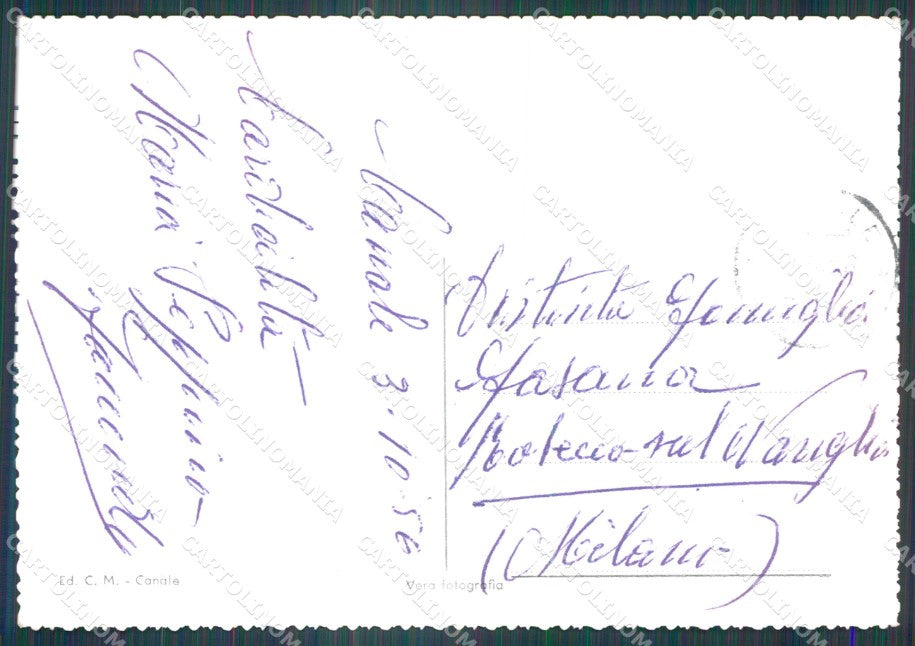 Canale 3.10.56
Cordialità
Maria Peppino
Distinta Famiglia
Fasana
Robecco sul Naviglio
(Milano)
Ed. C. M. - Canale
Vera fotografia
CARTOLINOMANIA